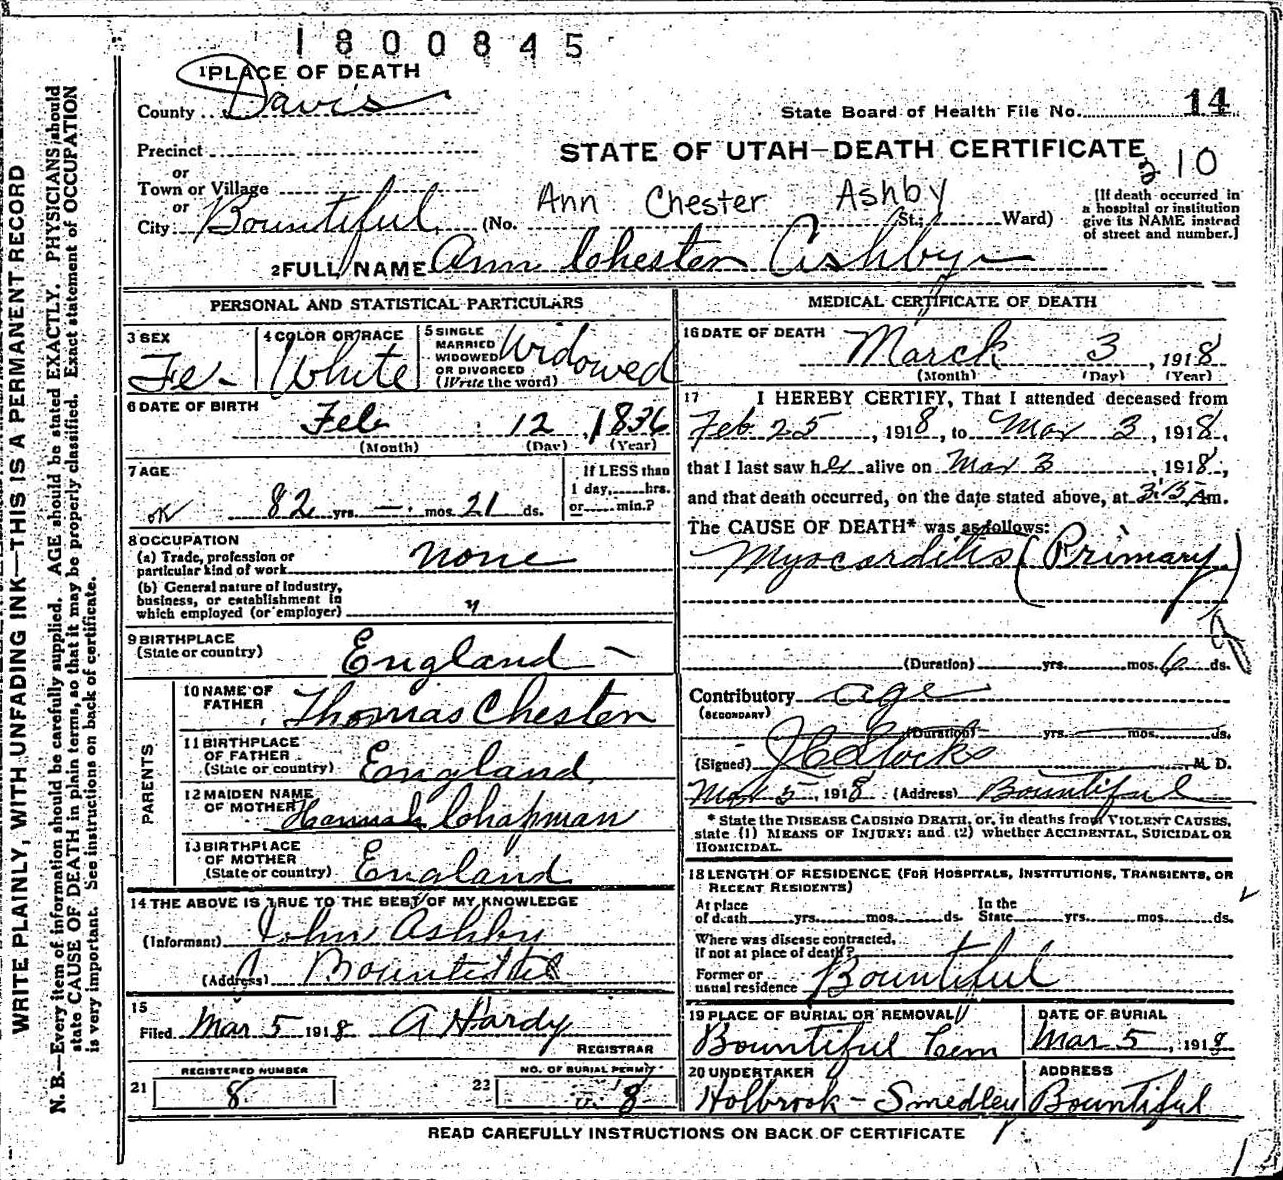 1800845
1 PLACE OF DEATH
County Davis
State Board of Health File No. 14
Precinct
or
Town or Village
or
City Bountiful (No. St.; Ward)
STATE OF UTAH—DEATH CERTIFICATE
10
Ann Chester Ashby
[If death occurred in
a hospital or institution
give its NAME instead
of street and number.]
2 FULL NAME Ann Chester Ashby
PERSONAL AND STATISTICAL PARTICULARS
3 SEX
Fe-
4 COLOR OR RACE
White
5 SINGLE
MARRIED
WIDOWED
OR DIVORCED
(Write the word)
Widowed
6 DATE OF BIRTH
Feb 12, 1836
(Month) (Day) (Year)
7 AGE
OK 82 yrs. — mos. 21 ds.
If LESS than
1 day, hrs.
or min.?
8 OCCUPATION
(a) Trade, profession or
particular kind of work none
(b) General nature of industry,
business, or establishment in
which employed (or employer) "
9 BIRTHPLACE
(State or country) England
PARENTS
10 NAME OF
FATHER Thomas Chester
11 BIRTHPLACE
OF FATHER
(State or country) England
12 MAIDEN NAME
OF MOTHER Hannah Chapman
13 BIRTHPLACE
OF MOTHER
(State or country) England
14 THE ABOVE IS TRUE TO THE BEST OF MY KNOWLEDGE
(Informant) John Ashby
(Address) Bountiful
15
Filed Mar 5 1918 A Hardy
REGISTRAR
21 REGISTERED NUMBER
8
22 NO. OF BURIAL PERMIT
8
MEDICAL CERTIFICATE OF DEATH
16 DATE OF DEATH
March 3, 1918
(Month) (Day) (Year)
17 I HEREBY CERTIFY, That I attended deceased from
Feb 25, 1918, to Mar 3, 1918,
that I last saw her alive on Mar 3, 1918,
and that death occurred, on the date stated above, at 3:15 Am.
The CAUSE OF DEATH* was as follows:
Myocarditis (Primary)
(Duration) yrs. mos. 6 ds.
Contributory age
(SECONDARY)
(Duration) yrs. mos. ds.
(Signed) M. D.
Mar 5, 1918 (Address) Bountiful
* State the DISEASE CAUSING DEATH, or, in deaths from VIOLENT CAUSES,
state (1) MEANS OF INJURY; and (2) whether ACCIDENTAL, SUICIDAL OR
HOMICIDAL.
18 LENGTH OF RESIDENCE (FOR HOSPITALS, INSTITUTIONS, TRANSIENTS, OR
RECENT RESIDENTS)
At place
of death yrs. mos. ds.
In the
State yrs. mos. ds.
Where was disease contracted,
if not at place of death?
Former or
usual residence Bountiful
19 PLACE OF BURIAL OR REMOVAL
Bountiful Cem
DATE OF BURIAL
Mar 5, 1918
20 UNDERTAKER
Holbrook - Smedley
ADDRESS
Bountiful
READ CAREFULLY INSTRUCTIONS ON BACK OF CERTIFICATE
WRITE PLAINLY, WITH UNFADING INK—THIS IS A PERMANENT RECORD
N. B.—Every item of information should be carefully supplied. AGE should be stated EXACTLY. PHYSICIANS should
state CAUSE OF DEATH in plain terms, so that it may be properly classified. Exact statement of OCCUPATION
is very important. See instructions on back of certificate.